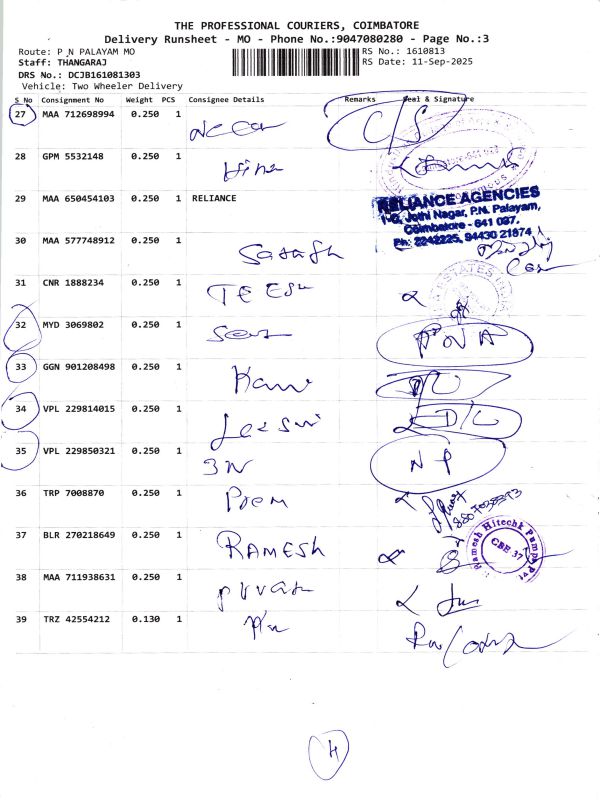 THE PROFESSIONAL COURIERS, COIMBATORE
Delivery Runsheet - MO - Phone No.:9047080280 - Page No.:3
Route: P N PALAYAM MO RS No.: 1610813
Staff: THANGARAJ RS Date: 11-Sep-2025
DRS No.: DCJB161081303
Vehicle: Two Wheeler Delivery
S No Consignment No Weight PCS Consignee Details Remarks Seal & Signature
27 MAA 712698994 0.250 1 C/S
28 GPM 5532148 0.250 1
29 MAA 650454103 0.250 1 RELIANCE
RELIANCE AGENCIES
1-G, Jothi Nagar, P.N. Palayam,
Coimbatore - 641 037.
Ph: 2242225, 94430 21874
30 MAA 577748912 0.250 1
31 CNR 1888234 0.250 1
32 MYD 3069802 0.250 1
33 GGN 901208498 0.250 1 D/L
34 VPL 229814015 0.250 1 D/L
35 VPL 229850321 0.250 1 3N NP
36 TRP 7008870 0.250 1 Prem
37 BLR 270218649 0.250 1 RAMESH
Ramesh Hitechk Pumps Pvt
CBE 37
38 MAA 711938631 0.250 1
39 TRZ 42554212 0.130 1